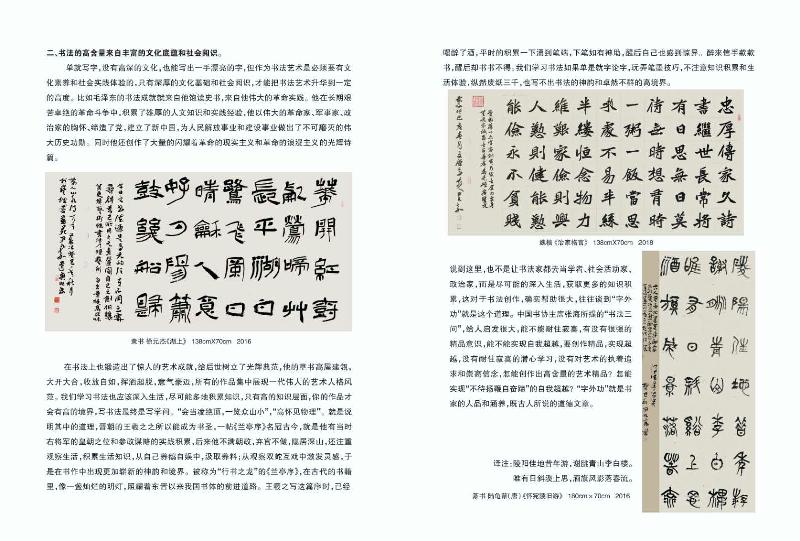 二、书法的高含量来自丰富的文化底蕴和社会阅识。
单就写字,没有高深的文化,也能写出一手漂亮的字,但作为书法艺术是必须要有文
化素养和社会实践体验的,只有深厚的文化基础和社会阅识,才能把书法艺术升华到一定
的高度。比如毛泽东的书法成就就来自他饱读史书,来自他伟大的革命实践。他在长期艰
苦卓绝的革命斗争中,积累了雄厚的人文知识和实践经验,他以伟大的革命家、军事家、政
治家的胸怀,缔造了党,建立了新中国,为人民解放事业和建设事业做出了不可磨灭的伟
大历史功勋。同时他还创作了大量的闪耀着革命的现实主义和革命的浪漫主义的光辉诗
篇。
花开红树
乱莺啼草
长平湖白
鹭飞风日
晴和人意
好夕阳箫
鼓几船归
隶书 徐元杰《湖上》 138cmX70cm 2016
在书法上也锻造出了惊人的艺术成就,给后世树立了光辉典范,他的草书高屋建瓴、
大开大合、收放自如,挥洒超脱,意气豪迈,所有的作品集中展现一代伟人的艺术人格风
范。我们学习书法也应该深入生活,尽可能多地积累知识,只有高的知识层面,你的作品才
会有高的境界,写书法虽终是写学问。“会当凌绝顶,一览众山小”,“高怀见物理”。就是说
明其中的道理,晋朝的王羲之之所以能成为书圣,一帖《兰亭序》名冠古今,就是他有当时
右将军的皇朝之位和参政谋略的实践积累,后来他不满朝政,弃官不做,隐居深山,还注重
观察生活,积累生活知识,从自己养鹅自娱中,汲取养料;从观察双蛇互戏中激发灵感,于
是在书作中出现更加崭新的神韵和境界。被称为“行书之龙”的《兰亭序》,在古代的书籍
里,像一盏灿烂的明灯,照耀着东晋以来我国书体的前进道路。王羲之写这篇序时,已经
喝醉了酒,平时的积累一下涌到笔端,下笔如有神助,醒后自己也感到惊异。醉来信手载载
书,醒后却书书不得。我们学习书法如果单是就字论字,玩弄笔墨技巧,不注意知识积累和生
活体验,纵然废纸三千,也写不出书法的神韵和卓然不群的高境界。
忠厚传家久诗
书继世长常将
有日思无日莫
待无时想有时
一粥一饭当思
来处不易半丝
半缕恒念物力
维艰家俭则兴
人勤则健能勤
能俭永不贫贱
魏楷《治家格言》 138cmX70cm 2018
说到这里,也不是让书法家都去当学者、社会活动家、
政治家,而是尽可能的深入生活,获取更多的知识积
累,这对于书法创作,确实帮助很大,往往谈到“字外
功”就是这个道理。中国书协主席张海所提的“书法三
问”,给人启发很大,能不能耐住寂寞,有没有很强的
精品意识,能不能实现自我超越,要创作精品,实现超
越,没有耐住寂寞的潜心学习,没有对艺术的执着追
求和崇高信念,怎能创作出高含量的艺术精品?怎能
实现“不待扬鞭自奋蹄”的自我超越?“字外功”就是书
家的人品和涵养,既古人所说的道德文章。
译注:陵阳佳地昔年游,谢朓青山李白楼。
唯有日斜溪上思,酒旗风影落春流。
篆书 陆龟蒙(唐)《怀宛陵旧游》 180cm×70cm 2016